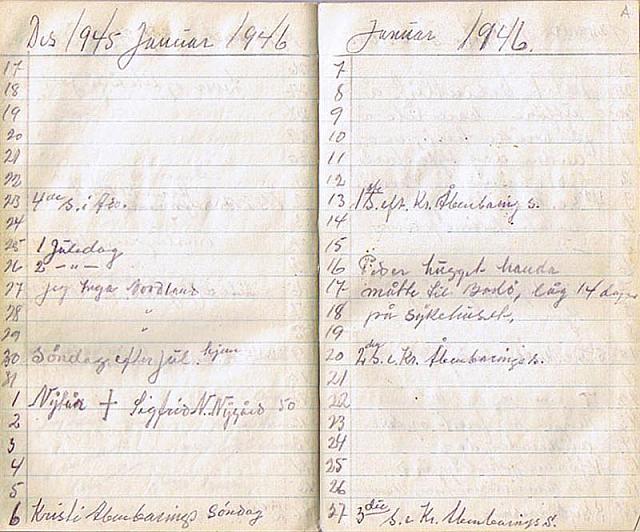 Des 1945 Januar 1946
17
18
19
20
21
22
23 4de s. i Adv.
24
25 1 Juledag
26 2 - " -
27 jeg Inga Nordland
28 "
29
30 Söndag efter jul. hjem
31
1 Nytår + Sigfrid N. Nygård 50
2
3
4
5
6 Kristi Åbenbarings Söndag
Januar 1946.
A
7
8
9
10
11
12
13 1ste S. eft. Kr. Åbenbaring s.
14
15
16 Peder hugget handa
17 måtte til Bodö, låg 14 dage
18 på sykehuset,
19
20 2den S. e. Kr. Åbenbarings s.
21
22
23
24
25
26
27 3die S. e Kr. Åbenbarings s.